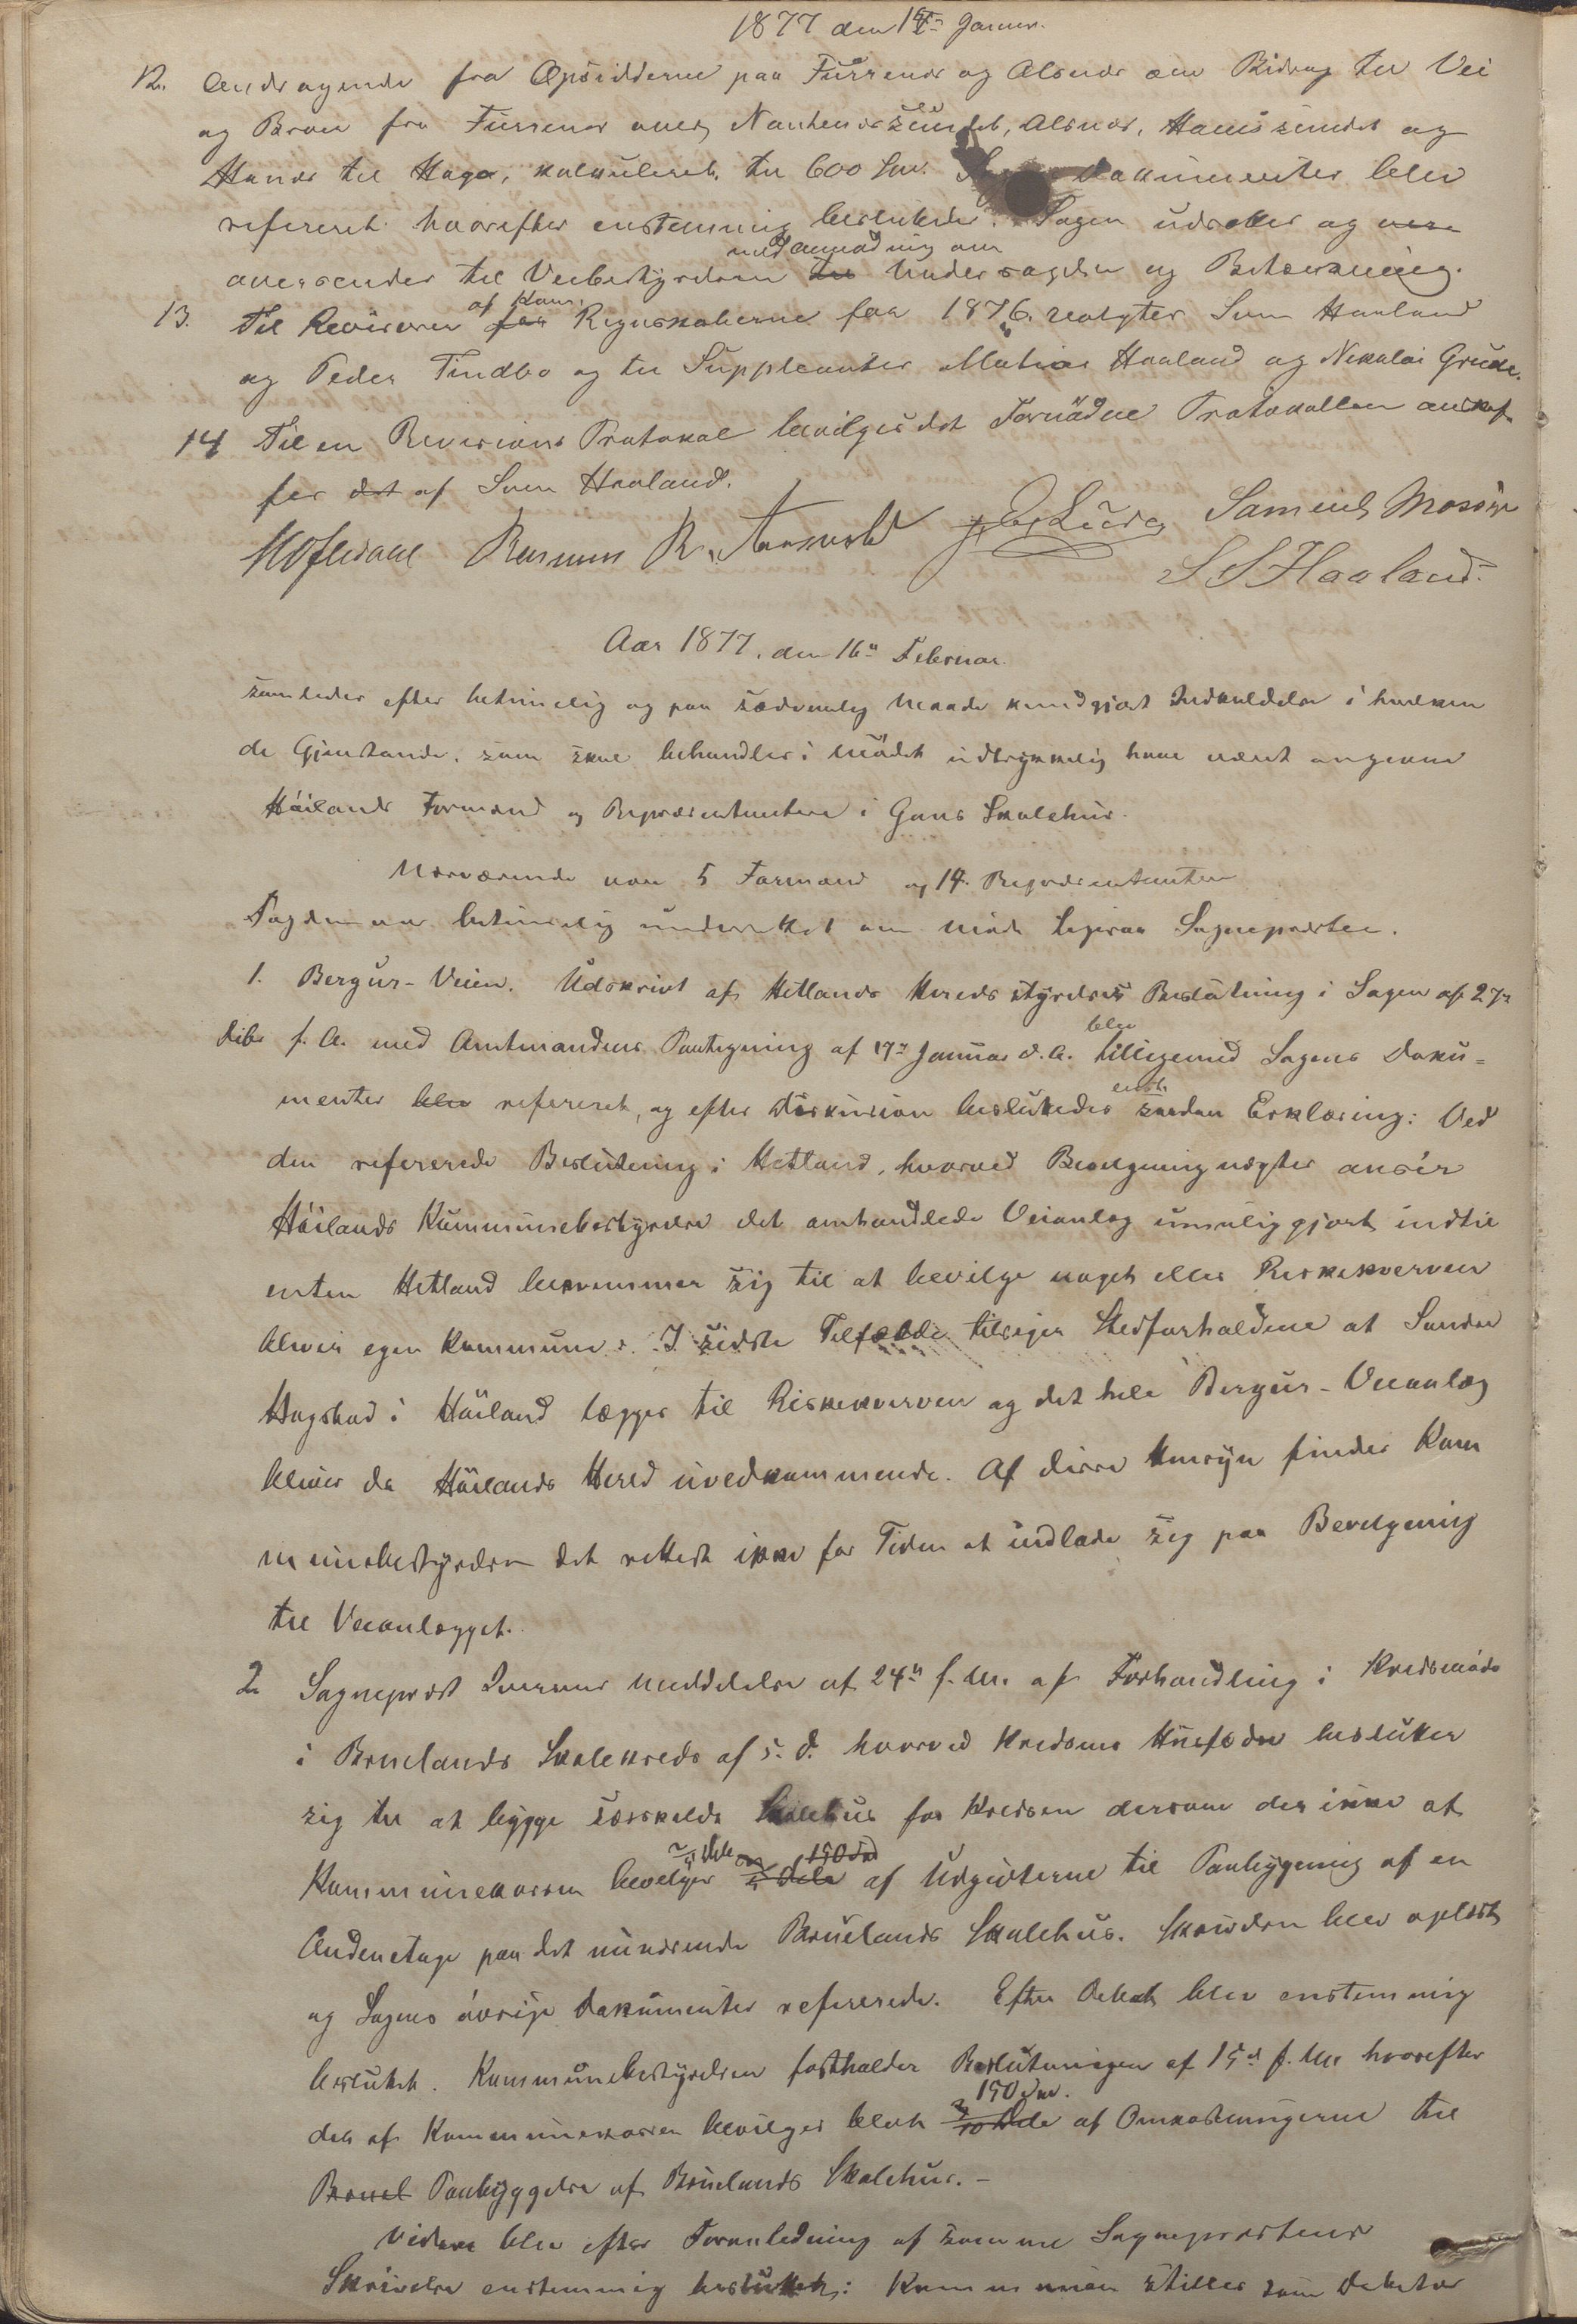 1877 den 15de Januar.
12. Andragende fra Opsidderne paa Furrenes og Alsnes om Bidrag til Vei
og Broer fra Furrenes over sundet, Alsnes, Haussundet og
til Haga, kalkuleret til 600 Spd. Dokumenter blev
refereret hvorefter enstemmig besluttedes: Sagen udsettes og
med anmodning om
oversendes til Veibestyrelsen til Undersøgelse og Betænkning.
af Kom.
13. Til Revisorer for Regnskaberne for 1876 valgtes Sven Haaland
og Peder Tindbø og til Suppleanter Matias Haaland og Nikolai Grude.
14 Til en Revisions Protokol bevilges det Fornødne Protokollen anskaf-
fes det af Sven Haaland.
Rasmus R. Aarsvold Samuel Mossige
S S Haaland.
Aar 1877, den 16de Februar.
samledes efter betimelig og paa sædvanlig Maade kundgjort Indkaldelse i hvilken
de Gjenstande, som skal behandles i Mødet udtrykkelig have været angivne
Höilands Formænd og Repræsentantere i Gans Skolehus.
Nærværende var 5 Formænd og 14 Repræsentanter
Fogden var betimelig underrettet om Møde ligesaa Sognepresten.
1. Bergus-Veien. Udskrivt af Hetlands Heredsstyrelses Beslutning i Sagen af 27de
Debr f. A. med Amtmandens Paategning af 17de Januar d. A. blev tilligemed Sagens Doku-
menter blev refereret, og efter Diskusion besluttedes enst. saadan Erklæring: Ved
den refererede Beslutning i Hetland, hvorved Bevilgning nægtes ansér
Höilands Kummunebestyrelse det omhandlede Veianlæg umuliggjort indtil
enten Hetland bekvemmer sig til at bevilge noget eller Riskekverven
bliver egen Kommune. I sidste Tilfælde tilsiger Stedforholdene at Søndre
Hogstad i Höiland lægges til Riskekverven og det hele Bergus-Veianlæg
bliver da Höilands Hered uvedkommende. Af disse Hensyn finder Kom
munebestyrelsen det rettest ikke for Tiden at indlade sig paa Bevilgning
til Veianlægget.
2 Sogneprest Meddelelse af 24de f. M. af Forhandling i Kredsmøde
i Bruelands Skolekreds af s. d. hvorved Kredsens Husfædre beslutter
sig til at bygge særskilde Skolehus for Kredsen dersom der ikke af
Kommunekassen bevilges dele 150 Spd af Udgivterne til Paabygning af en
Andenetage paa det nuværende Bruelands Skolehus. Skrivelsen blev oplæst
og Sagens øvrige Dokumenter refererede. Efter Debat blev enstemmig
besluttet. Kommunebestyrelsen fastholder Beslutningen af 15de f. M. hvorefter
150 Spd.
der af Kommunekassen bevilges blot 3/10 Dele af Omkostningerne til
Bruel Paabyggelse af Bruelands Skolehus. –
Videre blev efter Foranledning af samme Sogneprestens
Skrivelse enstemmig besluttet: Kommunen stilles som Debitor